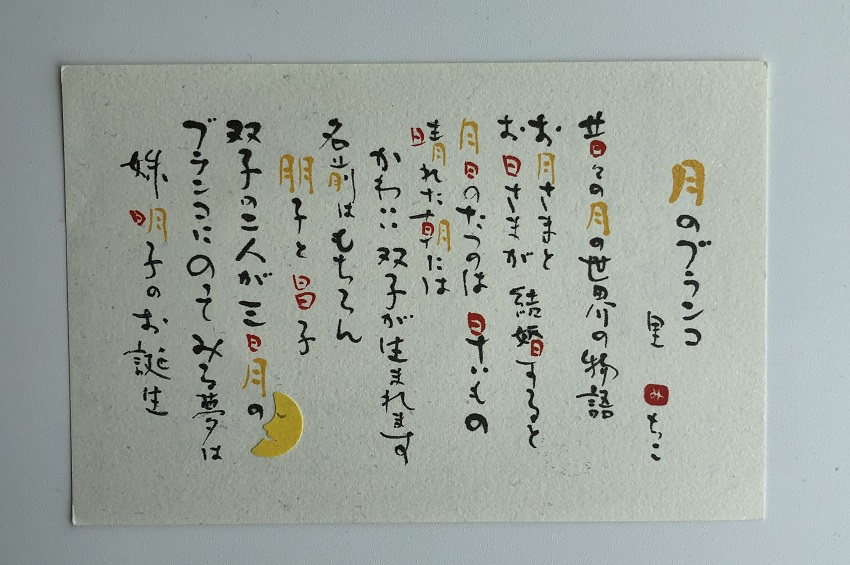 月のブランコ
里 みちこ
昔々の月の世界の物語
お月さまと
お日さまが 結婚すると
月日のたつのは 早いもの
晴れた朝には
かわいい双子が生まれます
名前はもちろん
朋子と昌子
双子の二人が三日月の
ブランコにのって みる夢は
妹 明子のお誕生